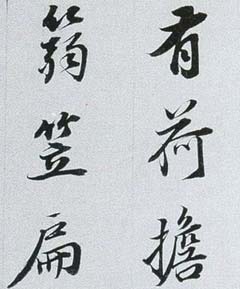 有荷擔
篛笠扁